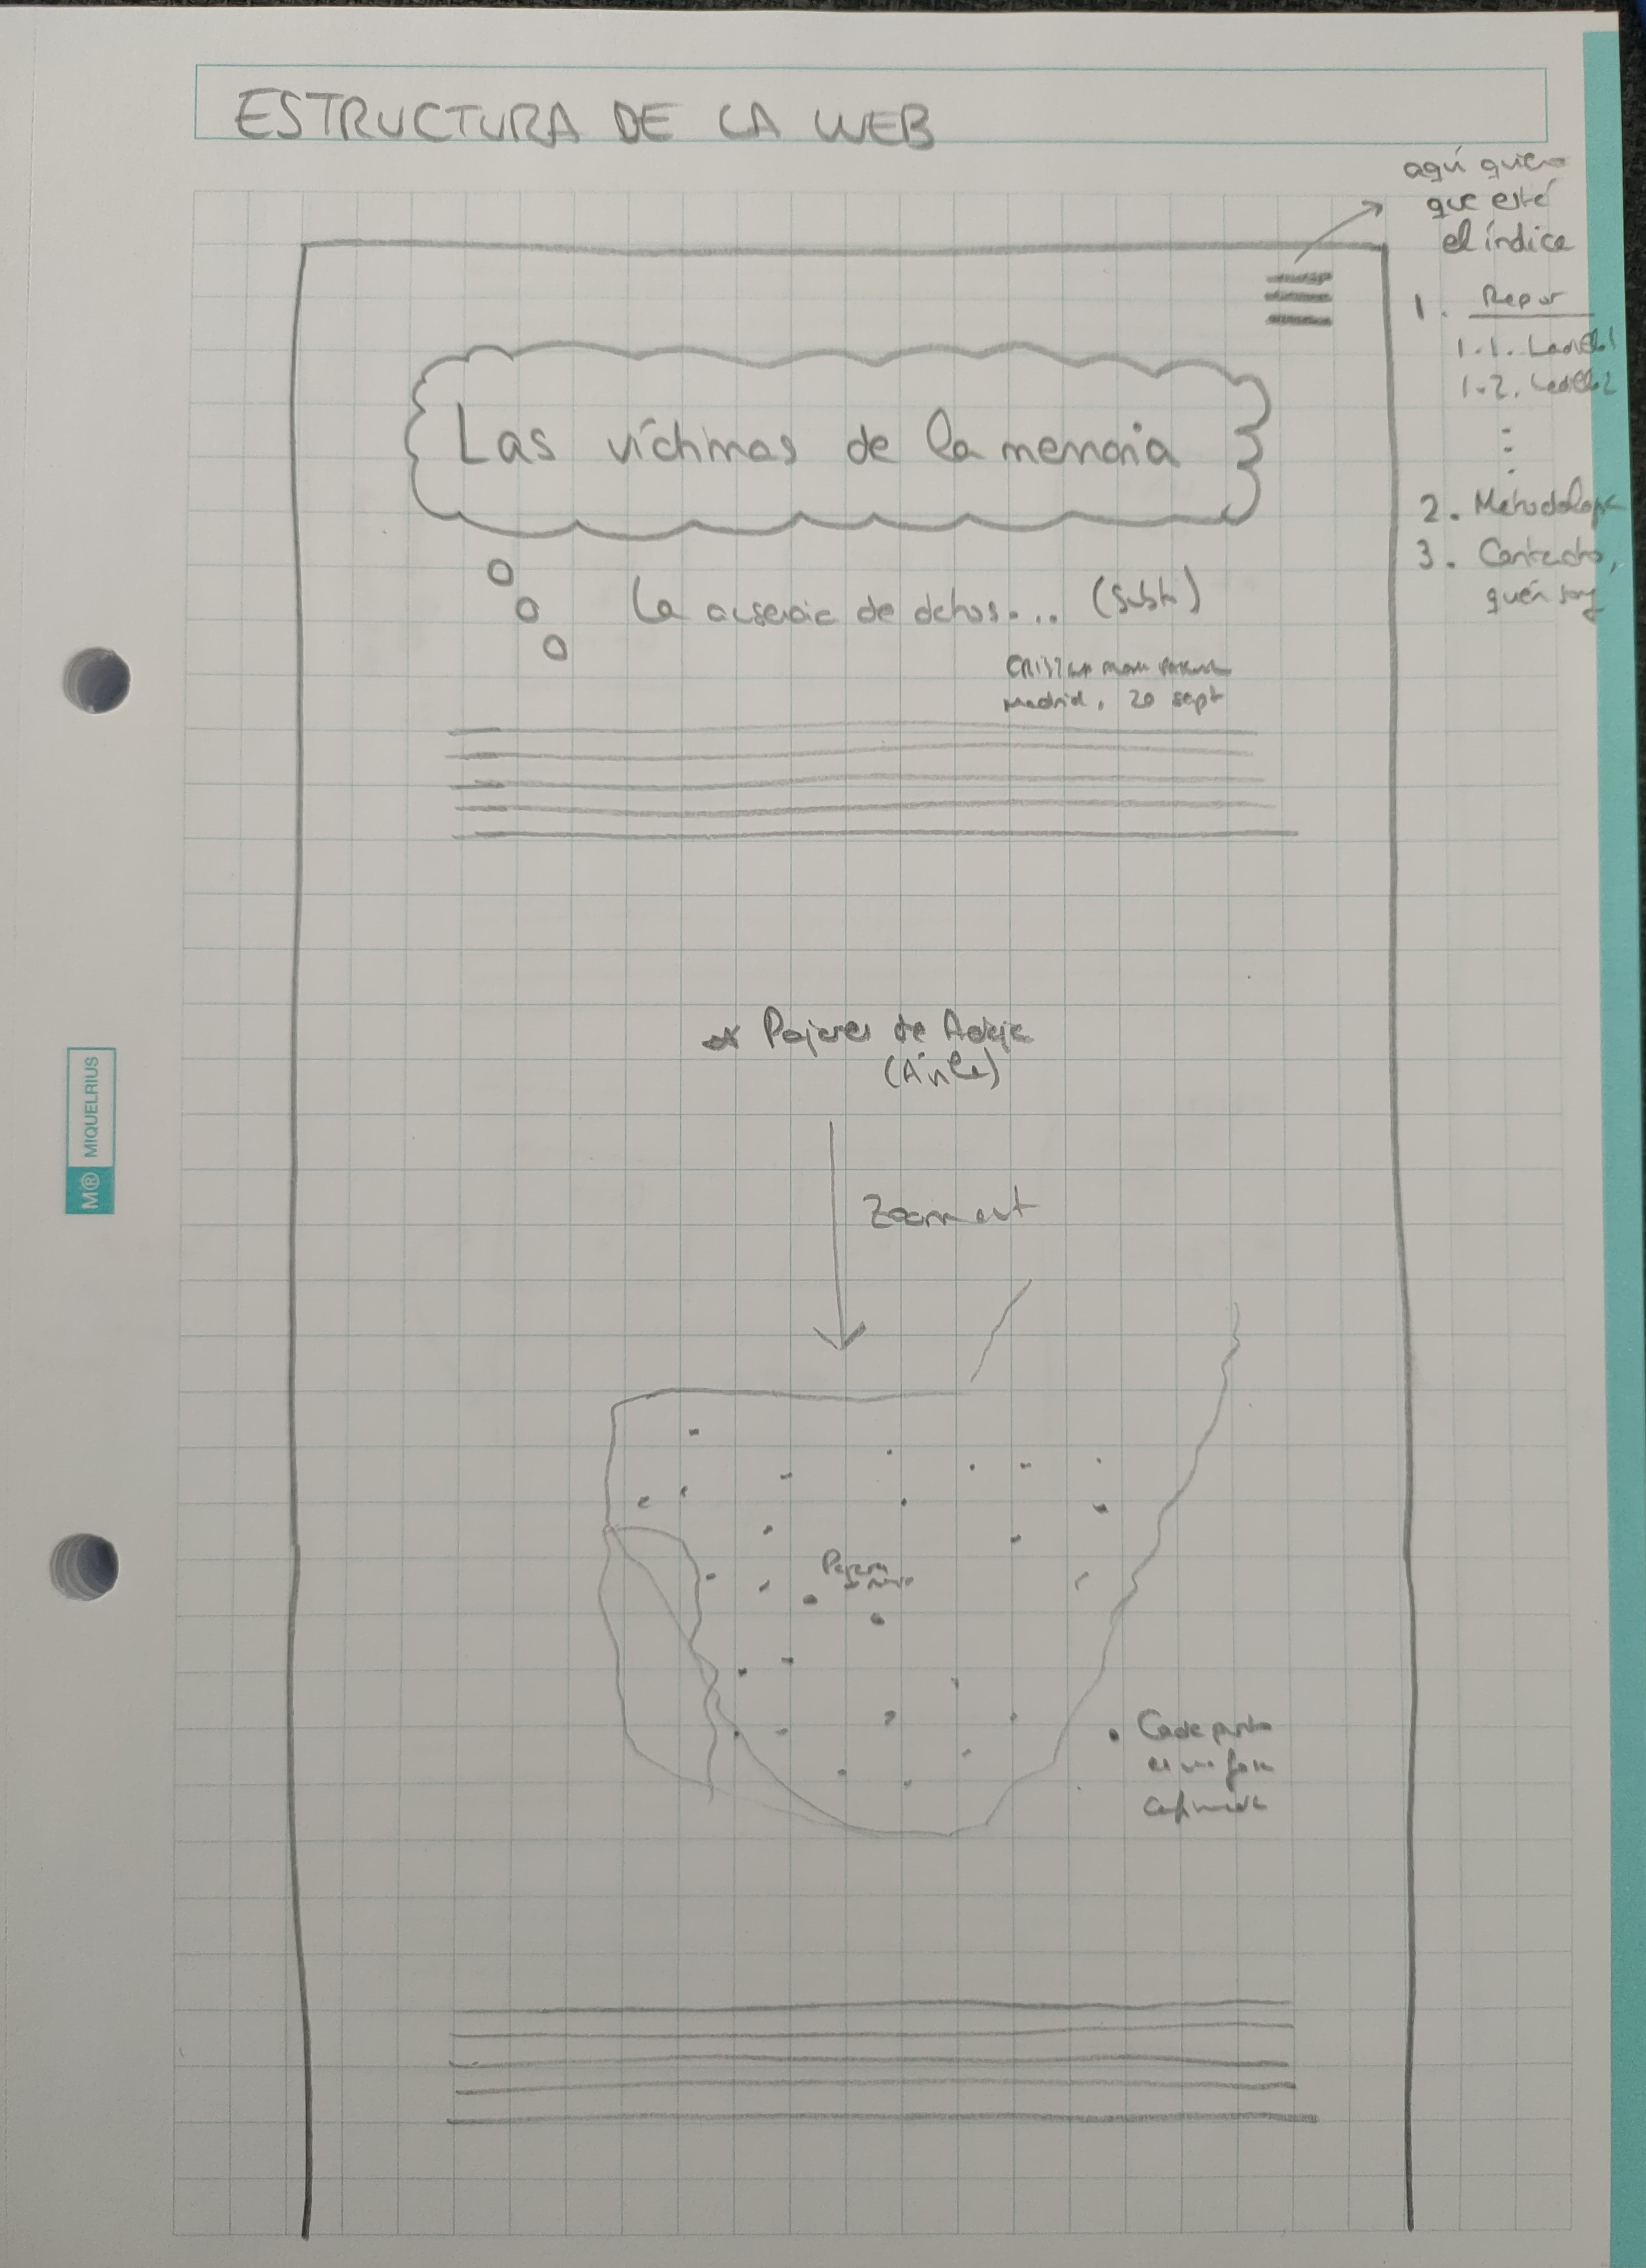 ESTRUCTURA DE LA WEB
aquí quiero
que esté
el índice
1. Repor
1.1. Ladillo1
1.2. Ladillo2
2. Metodología
3. Contacto,
quién soy
Las víctimas de la memoria
La ausencia de datos.... (subt)
Madrid, 20 sept
Pajares de Adaja
(Ávila)
Zoom out
Pajares
de Adaja
Cada punto
es una fosa
M® MIQUELRIUS